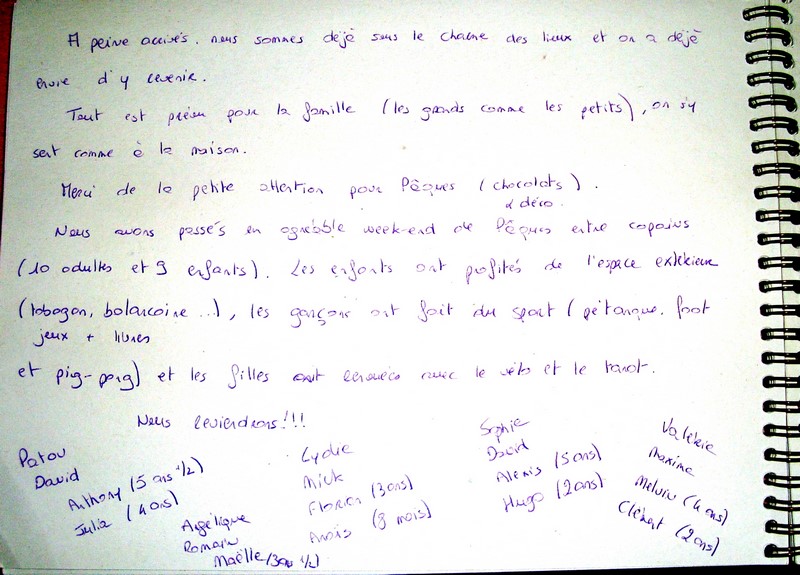 A peine arrivés, nous sommes déjà sous le charme des lieux et on a déjà
envie d'y revenir.
Tout est prévu pour la famille (les grands comme les petits), on s'y
sent comme à la maison.
Merci de la petite attention pour Pâques (chocolats).
& déco.
Nous avons passés un agréable week-end de Pâques entre copains
(10 adultes et 9 enfants). Les enfants ont profités de l'espace extérieur
(tobogan, balancoire ...), les garçons ont fait du sport (pétanque, foot
jeux + livres
et pig-pong) et les filles ont renouées avec le véto et le tarot.
Nous reviendrons!!!
Patou
David
Anthony (5 ans 1/2)
Julia (4 ans)
Angélique
Romain
Maëlle (3 ans 1/2)
Lydie
Mick
Florian (3 ans)
Anaïs (8 mois)
Sophie
David
Alexis (5 ans)
Hugo (2 ans)
Valérie
Maxime
Melvin (4 ans)
Clément (2 ans)